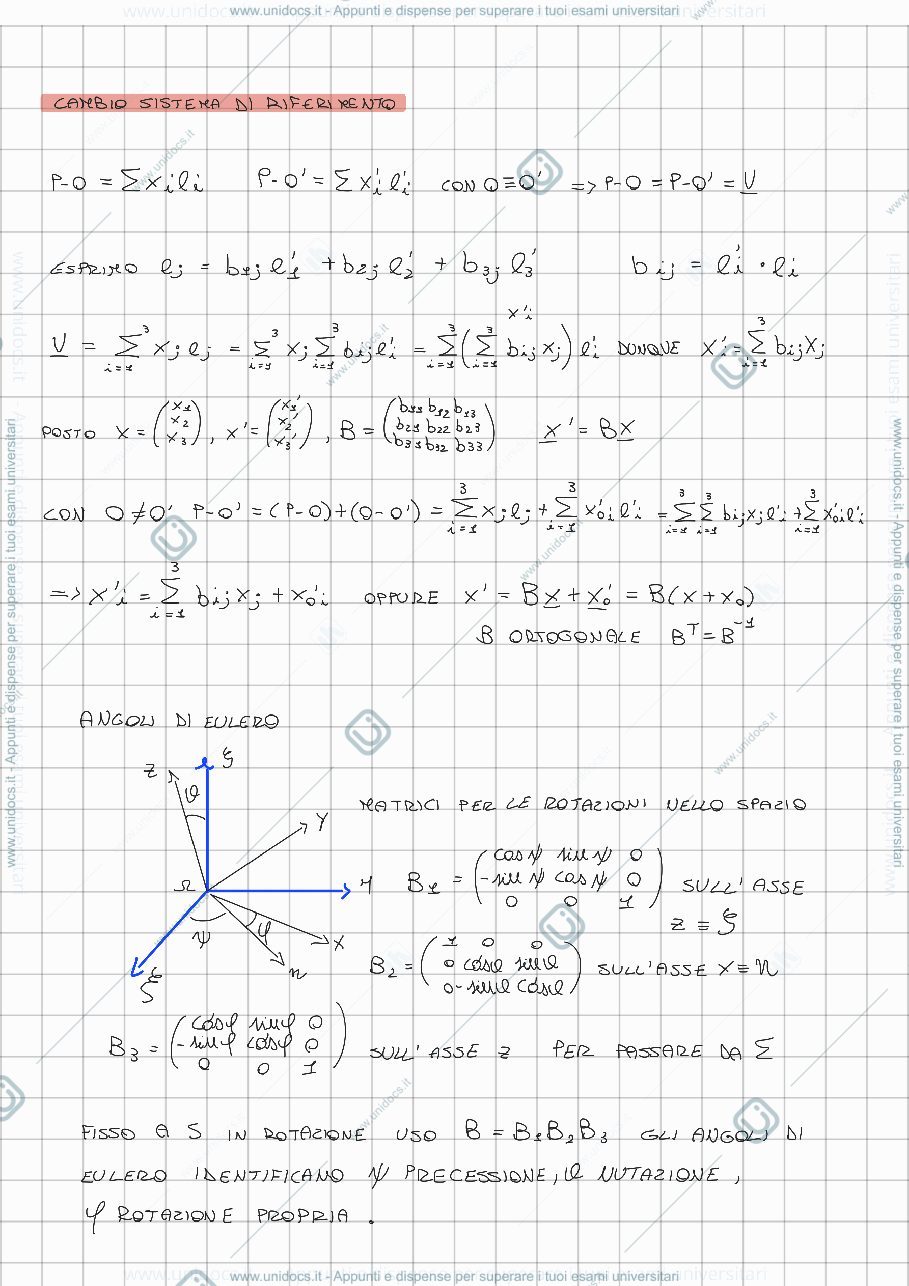 www.unidocs.it - Appunti e dispense per superare i tuoi esami universitari
CAMBIO SISTEMA DI RIFERIMENTO
P-O = ∑ xi ei   P-O' = ∑ x'i e'i   CON O≡O' => P-O = P-O' = V
ESPRIMO ej = b1j e'1 + b2j e'2 + b3j e'3   bij = e'i · ei
x'i
V = ∑_{i=1}^3 xj ej = ∑_{i=1}^3 xj ∑_{i=1}^3 bij e'i = ∑_{i=1}^3 (∑_{i=1}^3 bij xj) e'i DUNQUE x'i = ∑_{i=1}^3 bij xj
POSTO x = (x1 x2 x3), x' = (x1' x2' x3'), B = (b11 b12 b13 b21 b22 b23 b31 b32 b33)   x' = Bx
CON O≠O' P-O' = (P-O)+(O-O') = ∑_{i=1}^3 xj ej + ∑_{i=1}^3 x'oi e'i = ∑_{i=1}^3 ∑_{i=1}^3 bij xj e'i + ∑_{i=1}^3 x'oi e'i
=> x'i = ∑_{i=1}^3 bij xj + xo'i   OPPURE   x' = Bx + xo' = B(x + xo)
B ORTOGONALE   B^T = B^-1
ANGOLI DI EULERO
z ζ
θ
MATRICI PER LE ROTAZIONI NELLO SPAZIO
y
Ω η
B1 = (cosψ sinψ 0 -sinψ cosψ 0 0 0 1) SULL'ASSE
z ≡ ζ
ψ φ x
n
ξ
B2 = (1 0 0 0 cosθ sinθ 0 -sinθ cosθ) SULL'ASSE x≡n
B3 = (cosφ sinφ 0 -sinφ cosφ 0 0 0 1) SULL'ASSE z   PER PASSARE DA Σ
FISSO A S IN ROTAZIONE USO B = B1B2B3 GLI ANGOLI DI
EULERO IDENTIFICANO ψ PRECESSIONE, θ NUTAZIONE,
φ ROTAZIONE PROPRIA.
www.unidocs.it - Appunti e dispense per superare i tuoi esami universitari